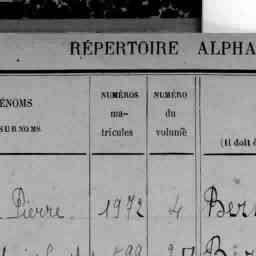 RÉPERTOIRE ALPHA
ÉNOMS
SURNOMS
NUMÉROS
ma-
tricules
NUMÉRO
du
volume
(Il doit
Pierre 1972 4 Ber